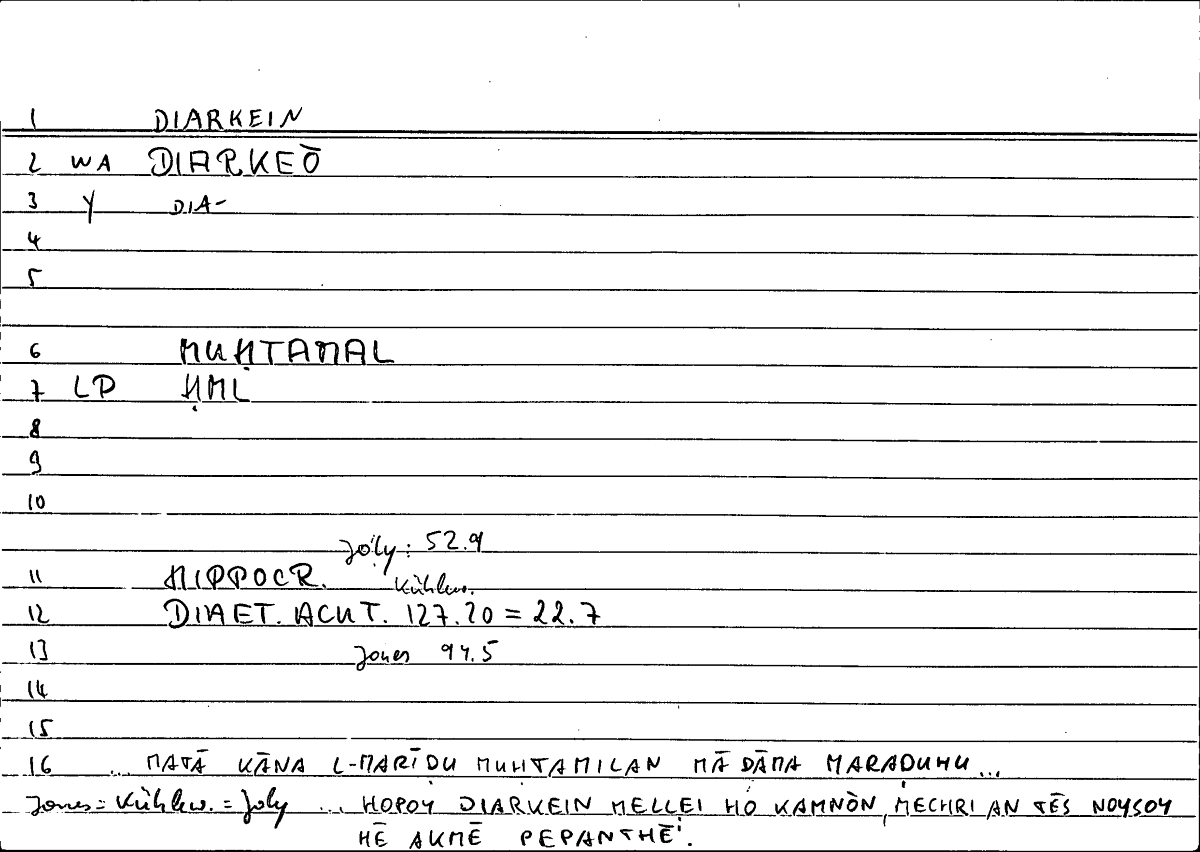 1 DIARKEIN
2 WA DIARKEŌ
3 Y DIA-
4
5
6 MUḤTAMAL
7 LP ḤML
8
9
10
Joly: 52.9
11 HIPPOCR. Kühlw.
12 DIAET. ACUT. 127.20 = 22.7
13 Jones 94.5
14
15
16 ... MATĀ KĀNA L-MARĪḌU MUḤTAMILAN MĀ DĀMA MARAḌUHU ...
Jones = Kühlw. = Joly ... HOPOY DIARKEIN MELLEI HO KAMNŌN, MECHRI AN TĒS NOYSOY
HĒ AKMĒ PEPANTHẸ̄.